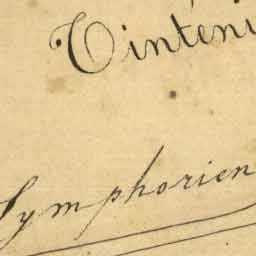 Tinténi
Symphorien